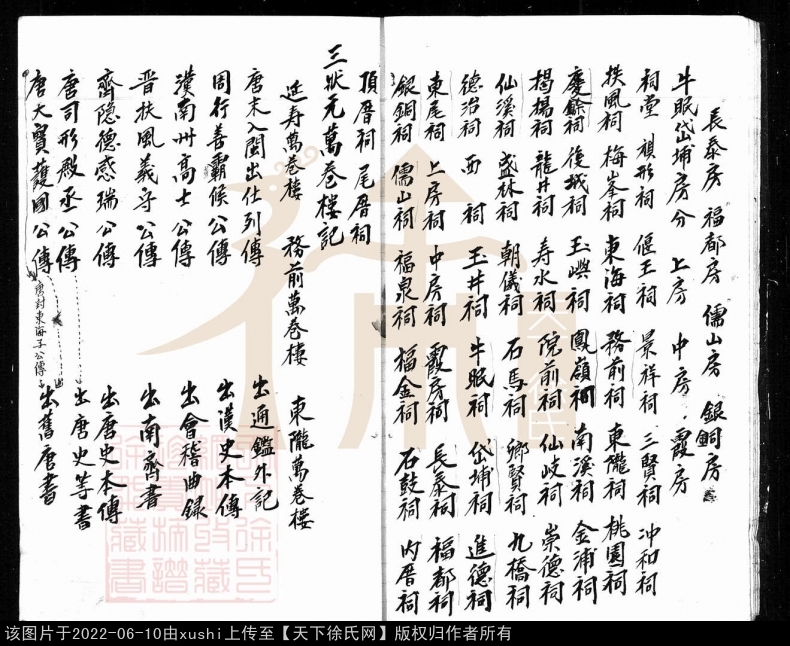 長泰房 福都房 儒山房 銀銅房
牛眠岱埔房分 上房 中房 霞房
祠堂 祖形祠 偃王祠 景祥祠 三賢祠 冲和祠
扶風祠 梅峯祠 東海祠 務前祠 東隴祠 桃園祠
慶餘祠 後城祠 玉嶼祠 鳳嶺祠 南溪祠 金浦祠
揭揚祠 龍井祠 寿水祠 院前祠 仙岐祠 崇德祠
仙溪祠 盛林祠 朝儀祠 石馬祠 鄉賢祠 九橋祠
德治祠 西祠 玉井祠 牛眠祠 岱埔祠 進德祠
東尾祠 上房祠 中房祠 霞房祠 長泰祠 福都祠
銀銅祠 儒山祠 福泉祠 福金祠 石鼓祠 内厝祠
頂厝祠 尾厝祠
三狀元萬卷樓記
延寿萬卷樓 務前萬卷樓 東隴萬卷樓
唐末入閩出仕列傳
周行善霸候公傳 出通鑑外記
漢南州高士公傳 出漢史本傳
晋扶風義守公傳 出會稽曲録
齊隐德感瑞公傳 出南齊書
唐司形殿丞公傳 出唐史本傳
唐大寳護國公傳 出唐史等書
唐封東海子公傳 出舊唐書
徐
该图片于2022-06-10由xushi上传至【天下徐氏网】版权归作者所有